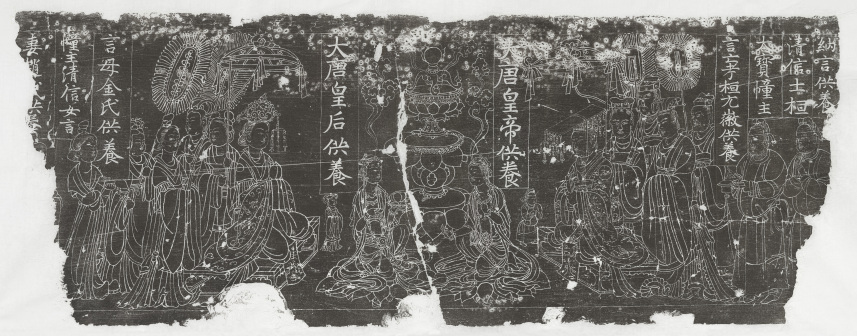 納言供養
清信士桓
大寶幢主
言孝桓尤徽供養
大唐皇帝供養
大唐皇后供養
言母金氏供養
幢主清信女言
妻趙供養